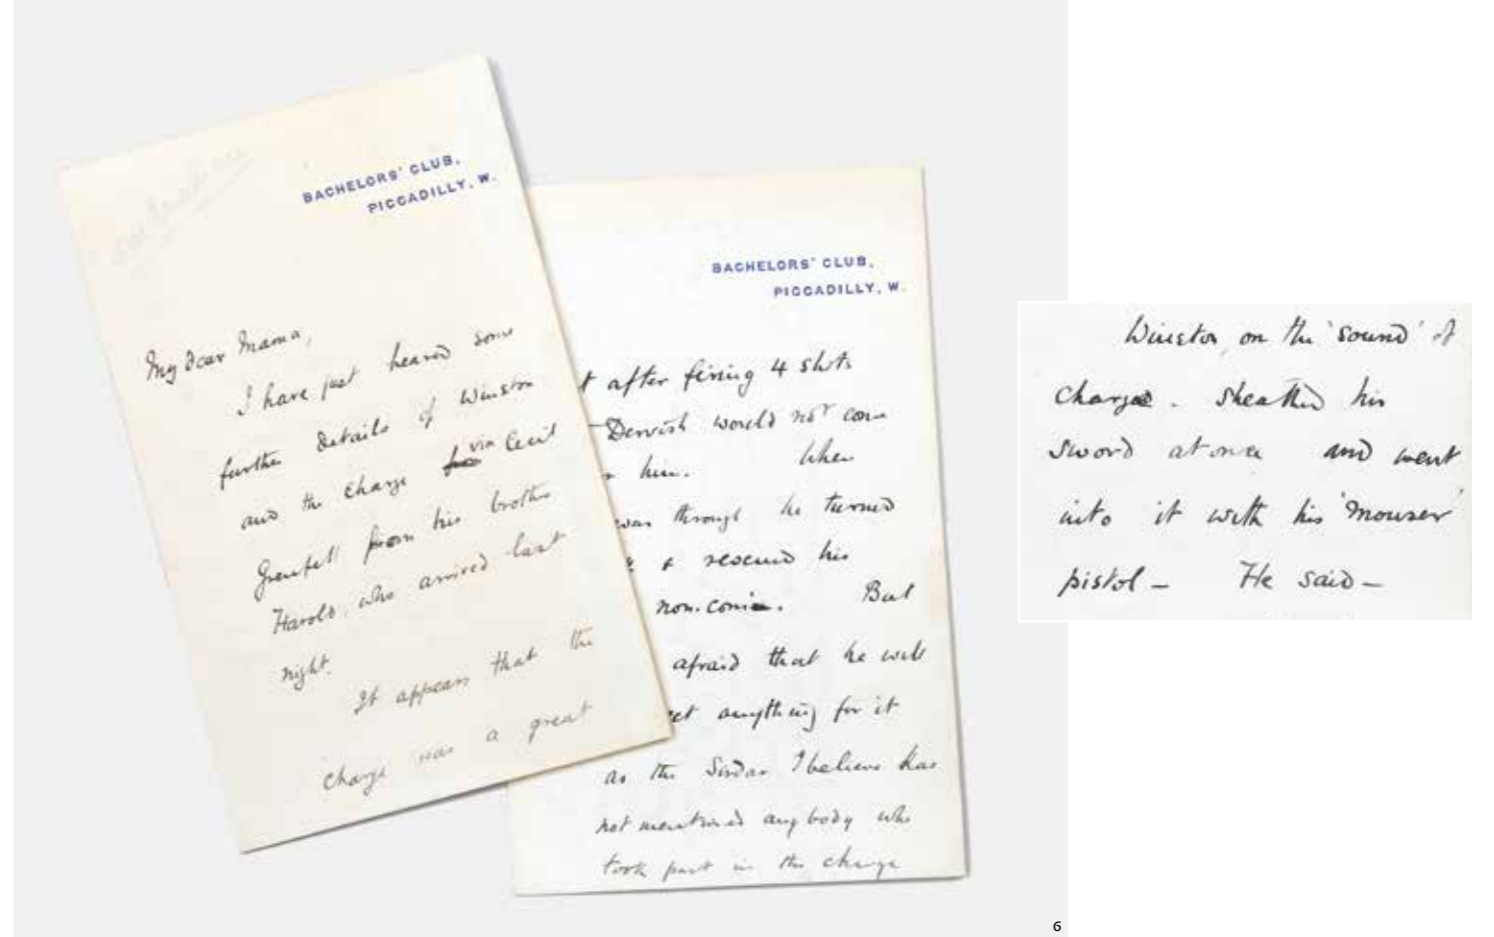 BACHELORS' CLUB,
PICCADILLY, W.
My dear Mama,
I have just heard some
further details of Winston
and the charge via Cecil
Grenfell from his brother
Harold, who arrived last
night.
It appears that the
charge was a great
BACHELORS' CLUB,
PICCADILLY, W.
t after firing 4 shots
Dervish would not come
him. When
was through he turned
& rescued his
non-com. But
afraid that he will
get anything for it
as the Sirdar I believe has
not mentioned anybody who
took part in the charge
Winston, on the 'sound' of
charge. sheathed his
sword at once and went
into it with his 'mouser'
pistol — He said —
6